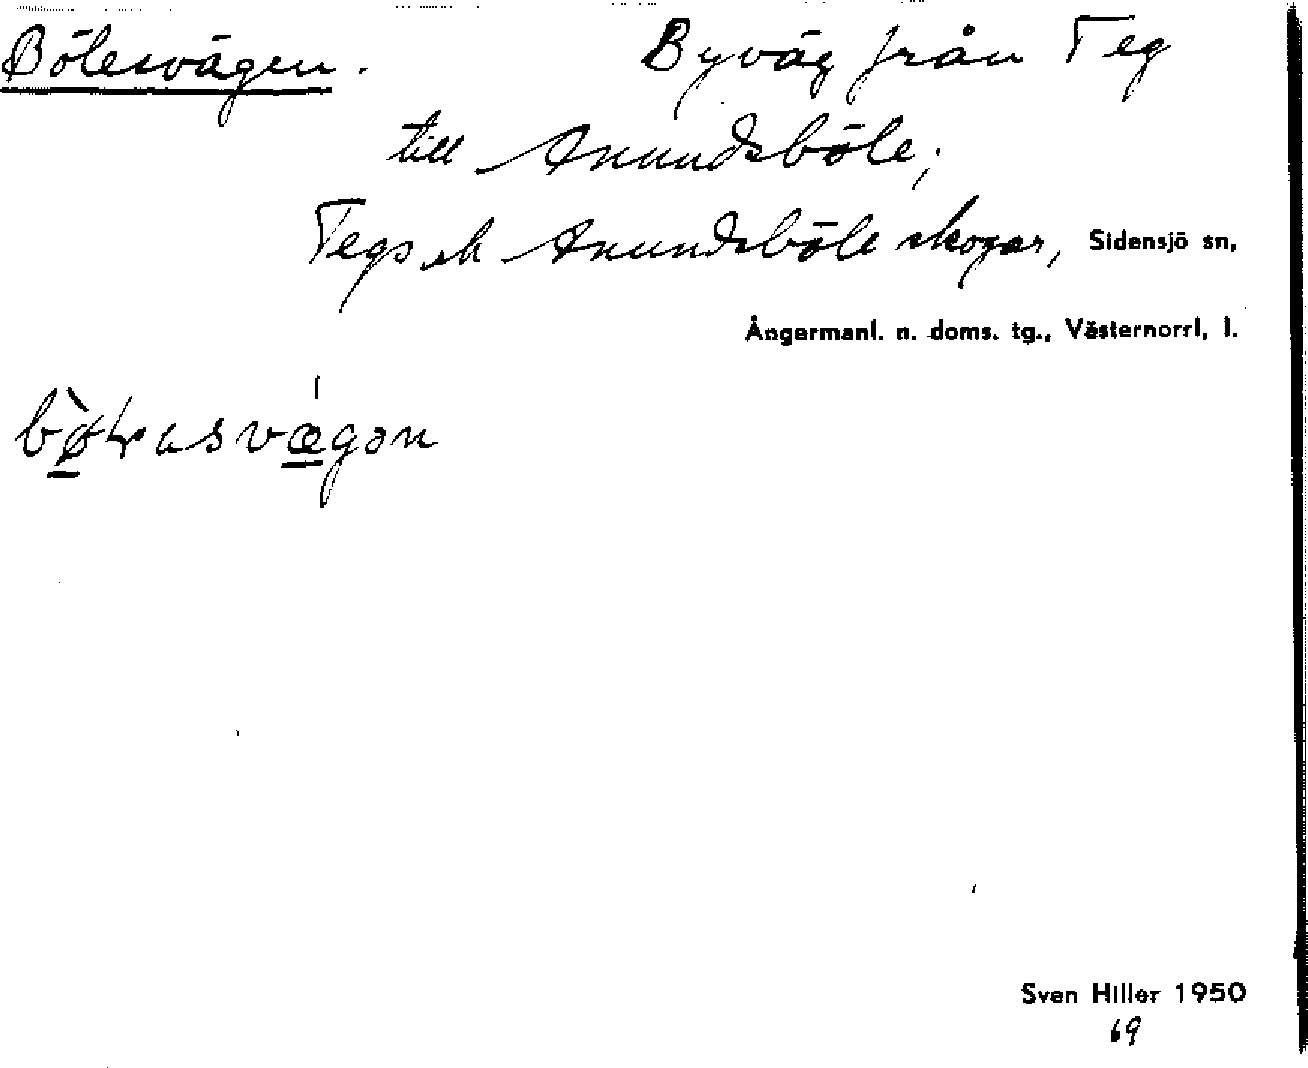 Bölesvägen. Byväg från Teg
till Anundsböle;
Tegs och Anundsböle skogar, Sidensjö sn,
Ångermanl. n. doms. tg., Västernorrl. l.
Sven Hiller 1950
69